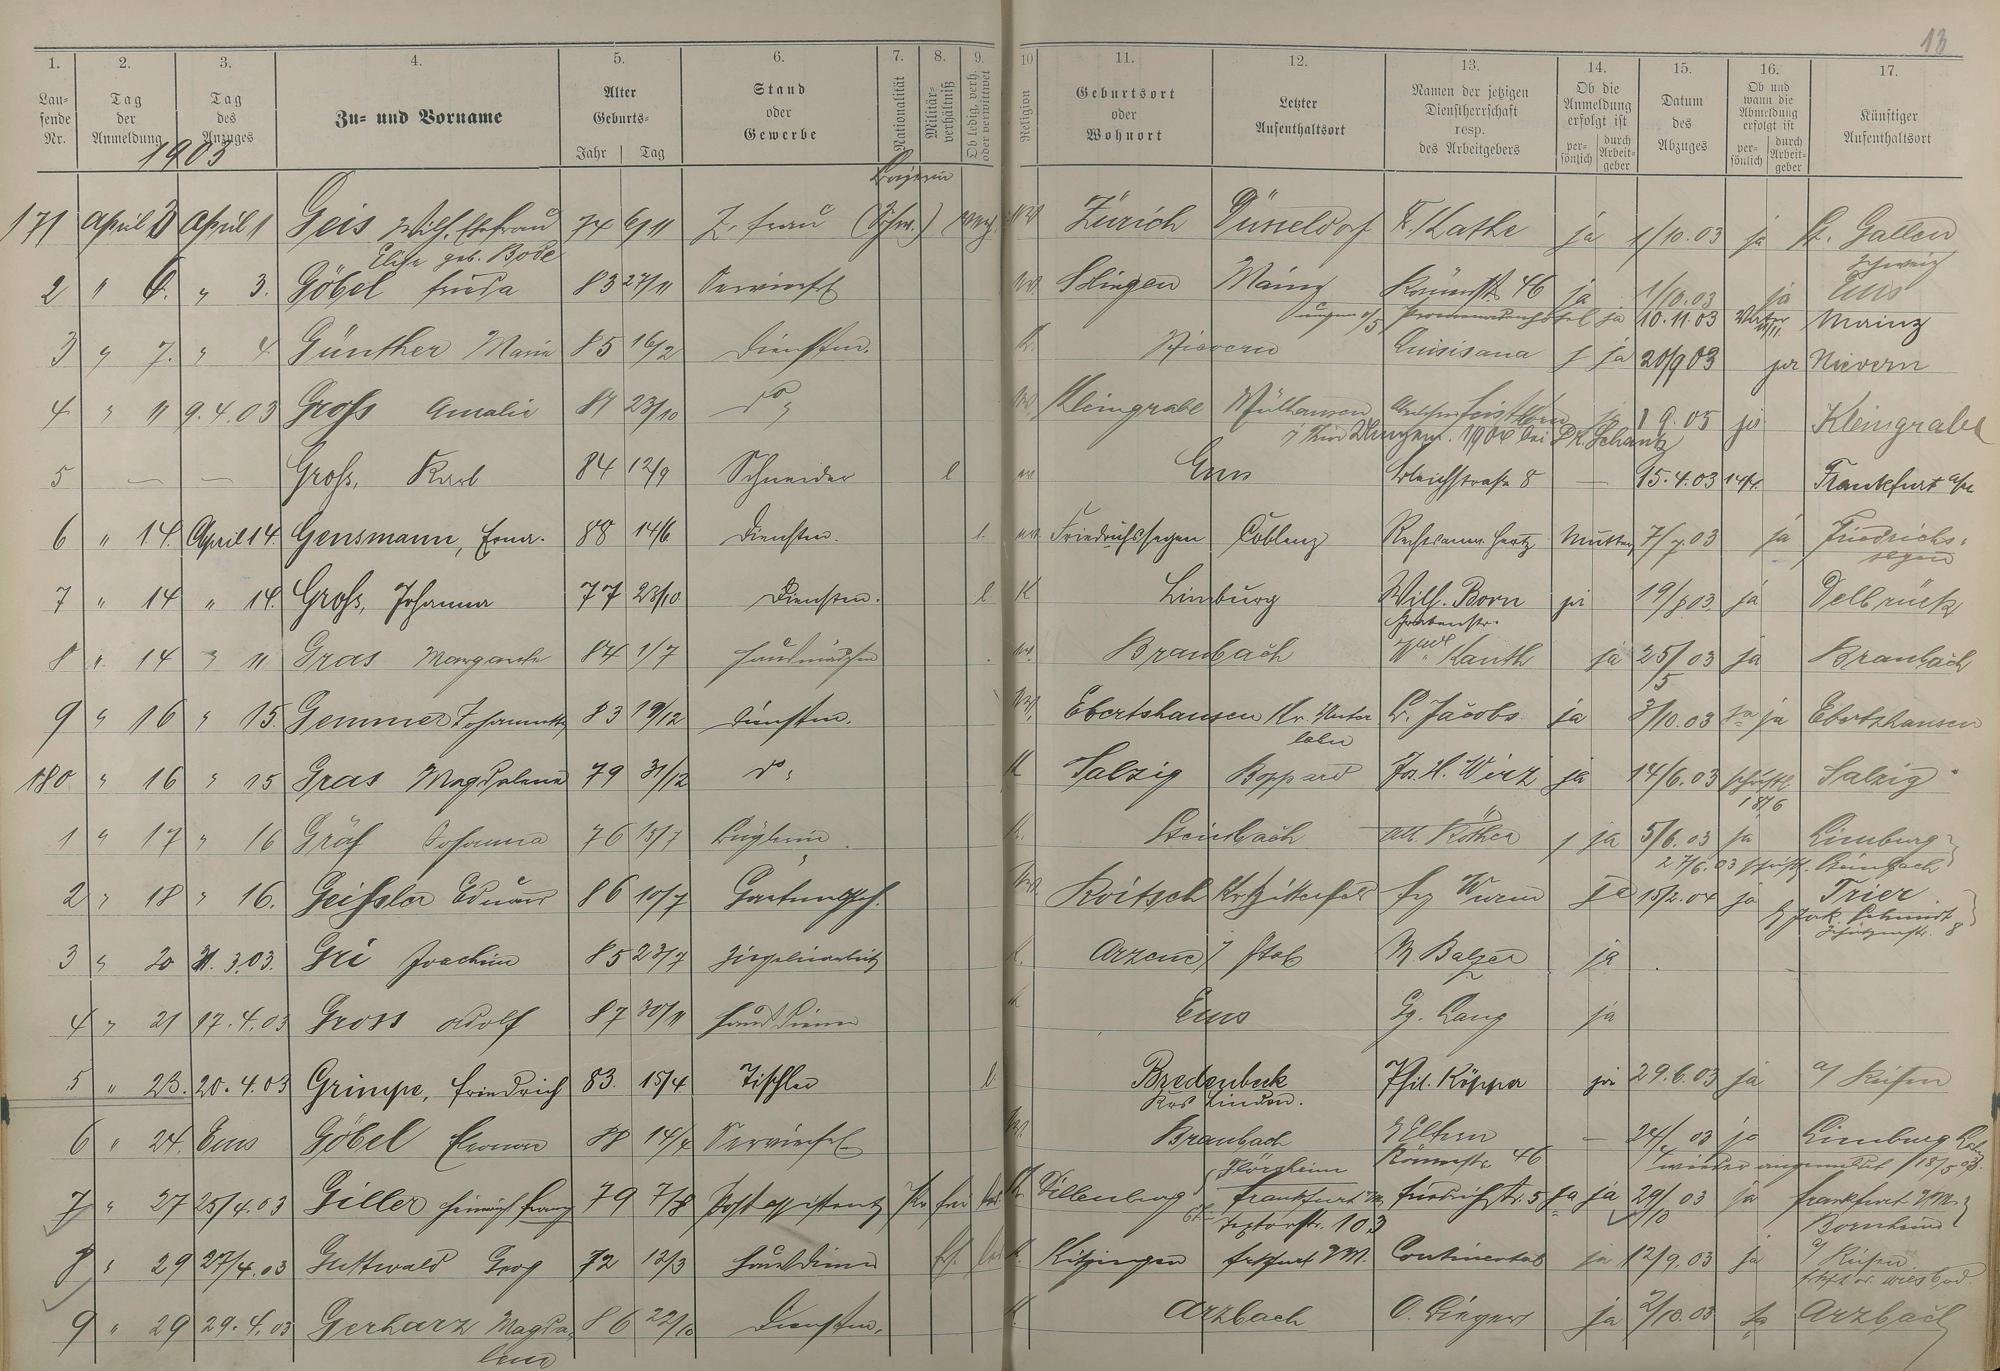 13
1. 2. 3. 4. 5. 6. 7. 8. 9. 10 11. 12. 13. 14. 15. 16. 17.
Laufende Nr. Tag der Anmeldung Tag des Anzuges Zu- und Vorname Alter Geburts- Jahr Tag Stand oder Gewerbe Nationalität Militärverhältniß Ob ledig, verh. oder verwittwet Religion Geburtsort oder Wohnort Letzter Aufenthaltsort Namen der jetzigen Dienstherrschaft resp. des Arbeitgebers Ob die Anmeldung erfolgt ist persönlich durch Arbeitgeber Datum des Abzuges Ob und wann die Abmeldung erfolgt ist persönlich durch Arbeitgeber Künftiger Aufenthaltsort
1903
Bayern
171 April April 1 Geis Wilh. Ehefrau 74 6/11 frau (Schw.) Zürich Düsseldorf F. Kathe ja 1/10.03 ja St. Gallen
Elise geb. Bode Schweiz
2 " 6. " 3. Göbel Frieda 83 27/11 Solingen Mainz Römerstr. 46 ja 1/10.03 ja Ems
ja 10.11.03 Mainz
3 " 7. " 4. Günther Marie 85 16/2 Diensten. K. Nievern Luisisana ja 20/9 03 ja Nievern
4 " 11 9.4.03 Groß Amalie 23/10 do " Kleingrabe Mülhausen 9.05 ja Kleingrabe
1904 bei Dr. Schantz
5 — — Groß, Karl 84 12/9 Schneider l Ems Bleichstraße 8 — 15.4.03 14/4. Frankfurt a/M
6 " 14. April 14. Gensmann, Erna. 88 14/6 Diensten. l. Friedrichssegen Coblenz Rechtsanw. Hertz Mutter 7/7 03 ja Friedrichs-
segen
7 " 14 " 14. Groß, Johanna 77 23/10 Diensten. l K Limburg Wilh. Born ja 19/8 03 ja Delbrück
Grabenstr.
8 " 14 " 11 Gras Margarete 84 1/7 Hausmädchen Braubach Kauth ja 25/5 03 ja Braubach
9 " 16 " 15. Gemmer Johannette 83 19/12 Diensten. Ebertshausen Kr. Unter L. Jacobs ja 3/10.03 ja ja Ebertshausen
lahn
180 " 16 " 15 Gras Magdalena 79 31/12 do " K Salzig Boppard Jos. H. Wirz ja 14/6.03 schriftl. Salzig
18/6
1 " 17 " 16 Gräf Johanna 76 15/7 Büglerin. K. Steinbach Köther ja 5/6.03 ja Limburg
27/6.03 schriftl. Steinbach
2 " 18 " 16. Geißler Eduard 86 10/7 Roitsch Kr. Bitterfeld Wurm 15/2.04 ja Trier
Jak. Schmidt
8
3 " 20 31.3.03. Gri Joachim 85 23/7 Ziegeleiarbeit K. Arzene M Balzer ja
4 " 21 17.4.03 Gross Adolf 87 30/11 Hausdiener K Ems Gg. Lang ja
5 " 23. 20.4.03 Grimpe, Friedrich 83. 15/4 Tischler l. Bredenbeck Phil. Köppa ja 29.6.03 ja a/ Reisen
Krs Linden.
6 " 24. Ems Göbel Eleonore 88 14/7 Braubach Eltern — 24/ 03 ja Limburg
Römerstr. 46 wieder angemeldet 18/5 03.
Flörsheim
7 " 27 25/4.03 Giller Heinrich Franz 79 7/8 Postassistent Pr. frei Dillenburg Frankfurt M. Friedrichstr. 5 ja ja 29/10 03 ja Frankfurt a/M
Textorstr. 103 Bornheim
8 " 29 27/4.03 Georg 72 12/3 Hausdiener K. Kitzingen Frkfurt a/M. Continental ja 12/9.03 ja a/ Reisen
Wiesbad.
9 " 29 29.4.03 Gerharz Magda- 86 22/10 Diensten. K. Arzbach O. Singert ja 2/10.03 ja Arzbach
lena